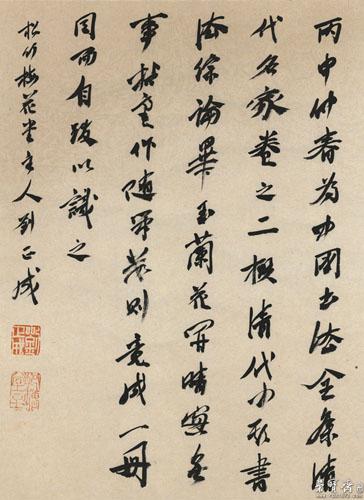 丙申仲春為中國书法全集清
代名家卷之二撰清代書
法综論畢玉蘭花開晴窗無
事拈毫作随则竟成一冊
因而自跋以識之
松竹梅花堂主人劉正成